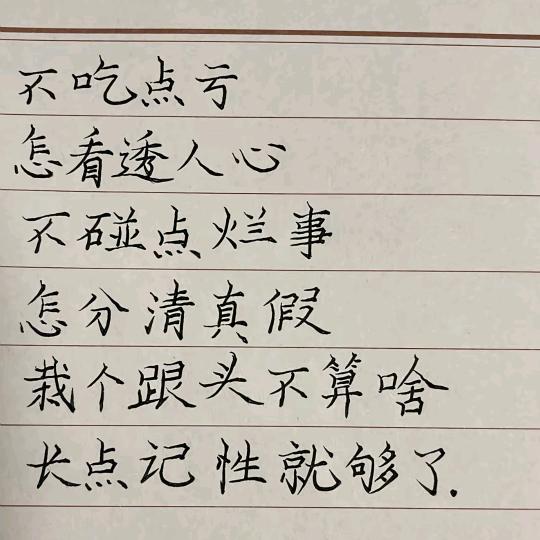 不吃点亏
怎看透人心
不碰点烂事
怎分清真假
栽个跟头不算啥
长点记性就够了.